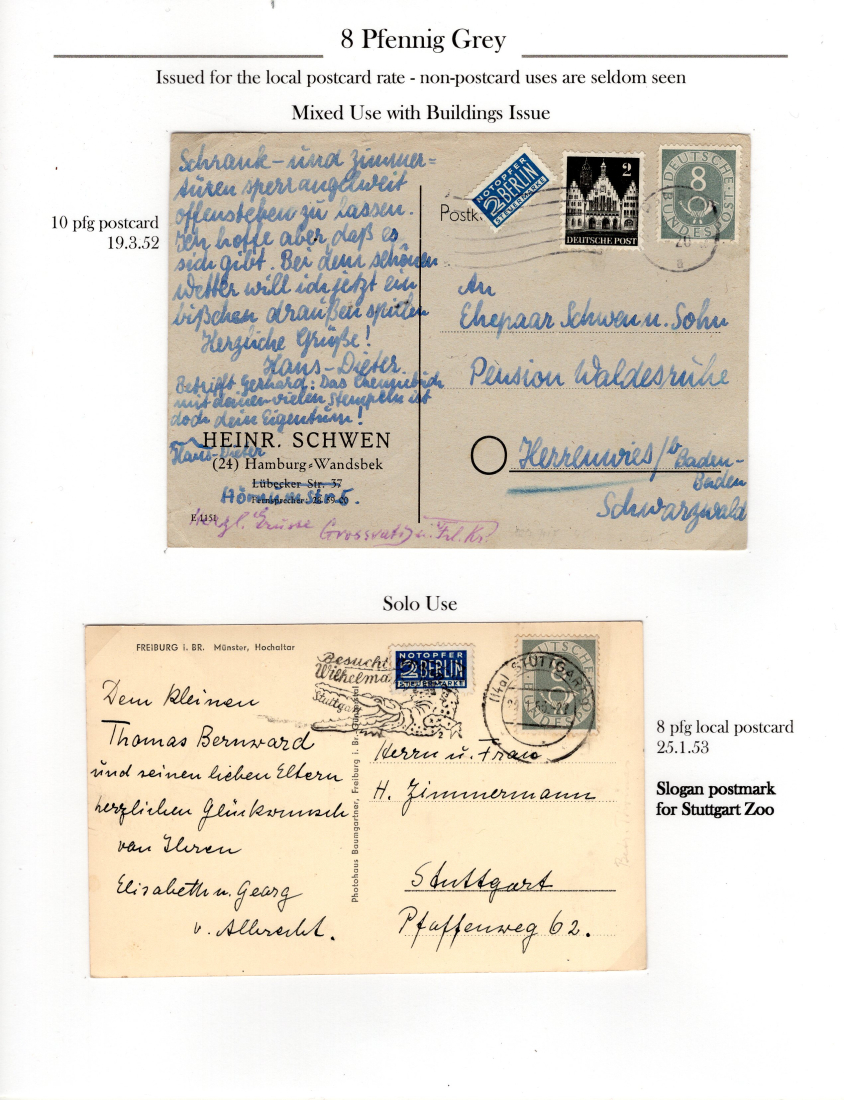 8 Pfennig Grey
Issued for the local postcard rate - non-postcard uses are seldom seen
Mixed Use with Buildings Issue
10 pfg postcard
19.3.52
Schrank- und Zimmer=
türen sperrangelweit
offenstehen zu lassen.
Ich hoffe aber, daß es
sich gibt. Bei dem schönen
Wetter will ich jetzt ein
bißchen draußen spielen
Herzliche Grüße!
Hans-Dieter.
Betrifft Gerhard: Das
mit deinen vielen Stempeln ist
doch dein Eigentum!
Hans-Dieter
HEINR. SCHWEN
(24) Hamburg-Wandsbek
Lübecker Str. 37
Fernsprecher: 28 59 00
E 1151
Herzl. Grüsse
NOTOPFER
2 BERLIN
STEUERMARKE
2
DEUTSCHE POST
DEUTSCHE BUNDESPOST
8
Postk
An
Ehepaar Schwen u. Sohn
Pension Waldesruhe
Herrenwies / b Baden-
Baden
Schwarzwald
Solo Use
FREIBURG i. BR. Münster, Hochaltar
Dem kleinen
Thomas Bernward
und seinen lieben Eltern
herzlichen Glückwunsch
von Ihren
Elisabeth u. Georg
v. Albrecht.
Photohaus Baumgartner, Freiburg i. Br., Günterstal
Besucht
Wilhelma
Stuttgart
NOTOPFER
2 BERLIN
STEUERMARKE
DEUTSCHE BUNDESPOST
8
(14a) STUTTGART
Herrn u. Frau
H. Zimmermann
Stuttgart
Pfaffenweg 62.
8 pfg local postcard
25.1.53
Slogan postmark
for Stuttgart Zoo